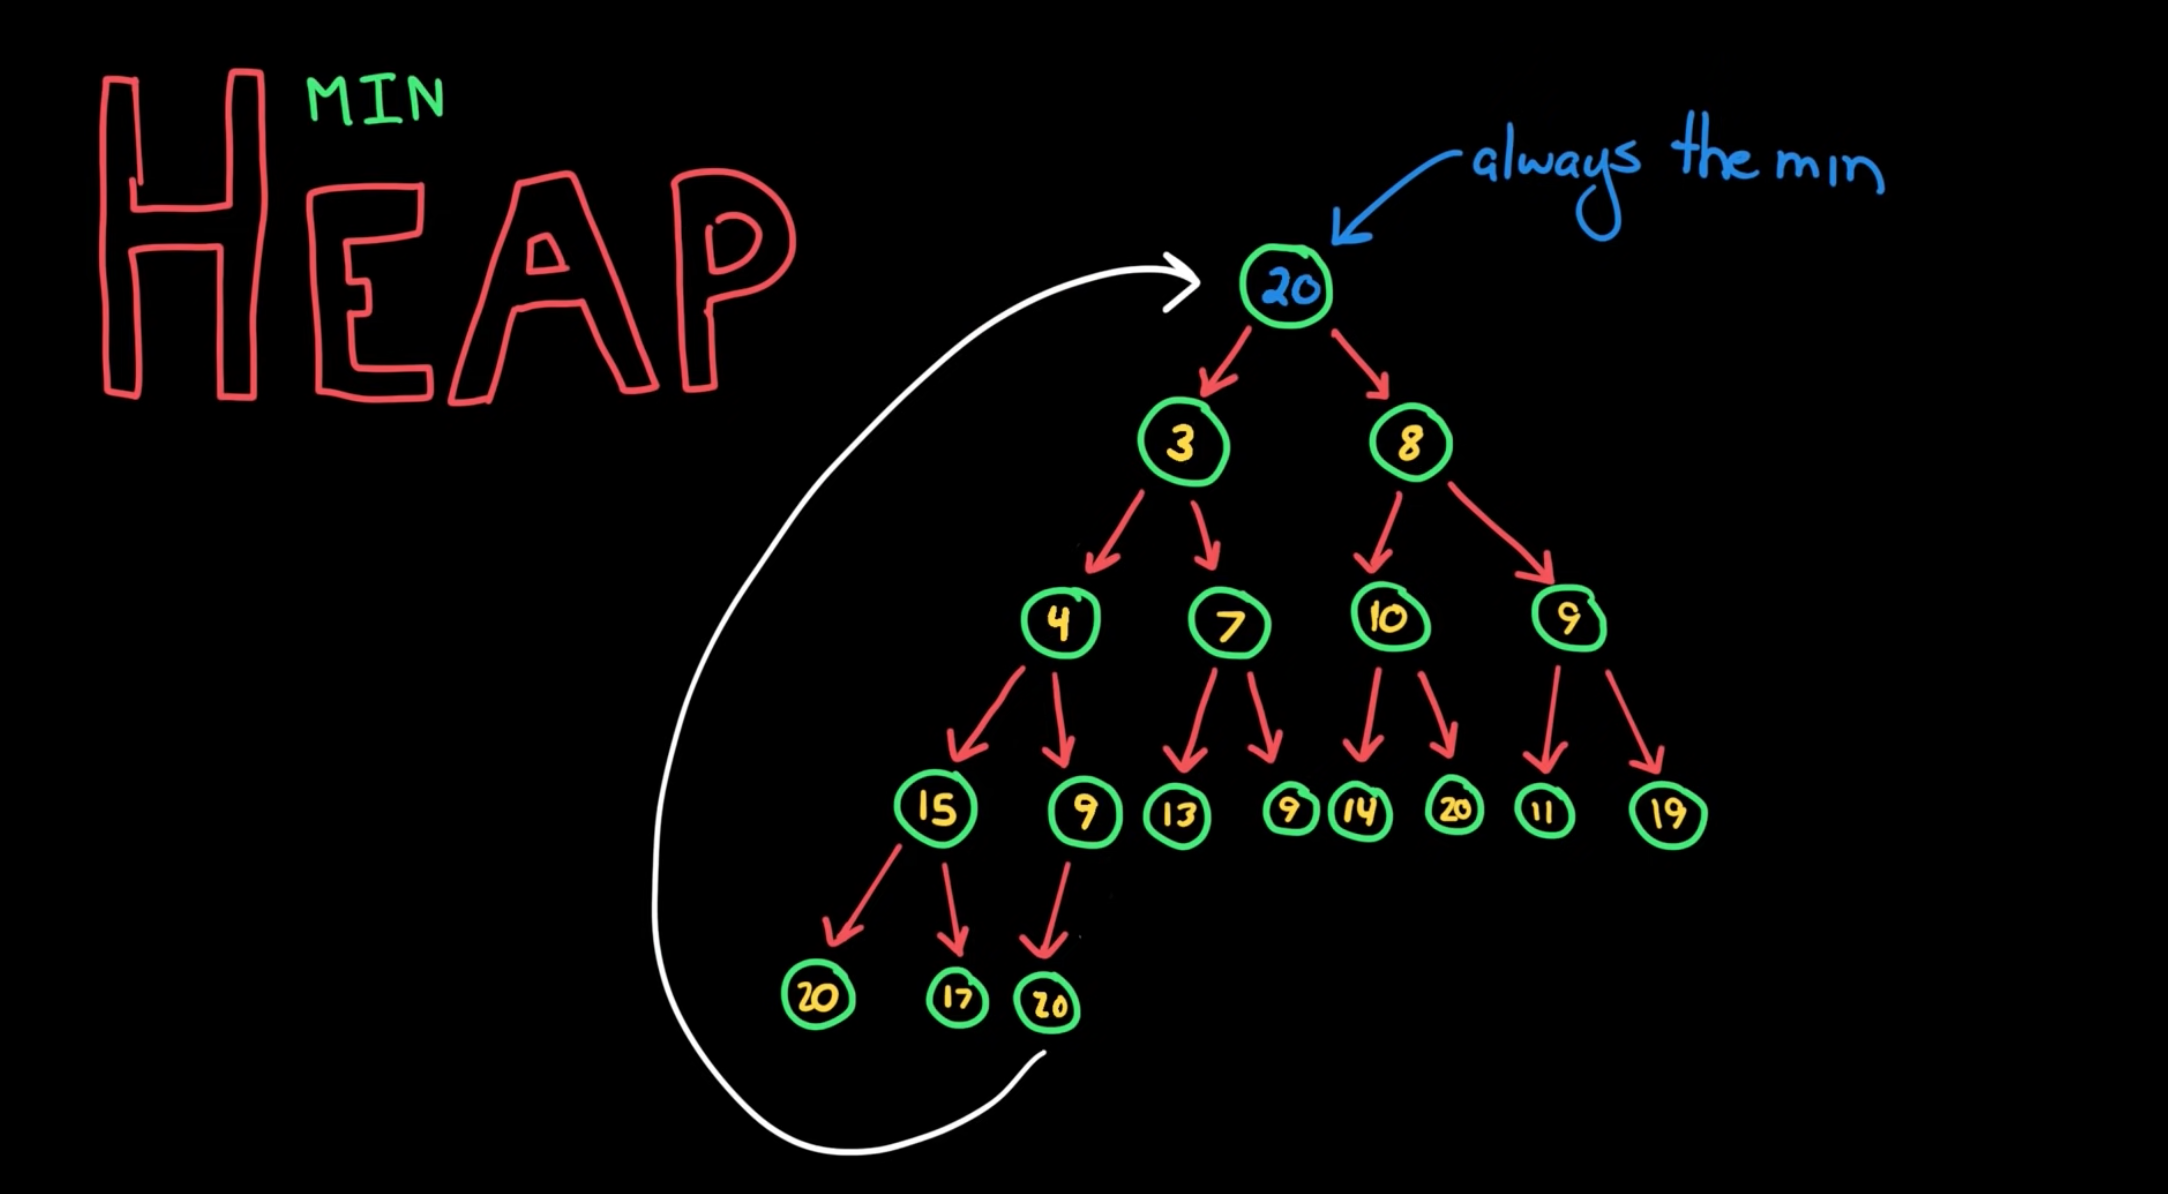 MIN
HEAP
always the min
20
3 8
4 7 10 9
15 9 13 9 14 20 11 19
20 17 20